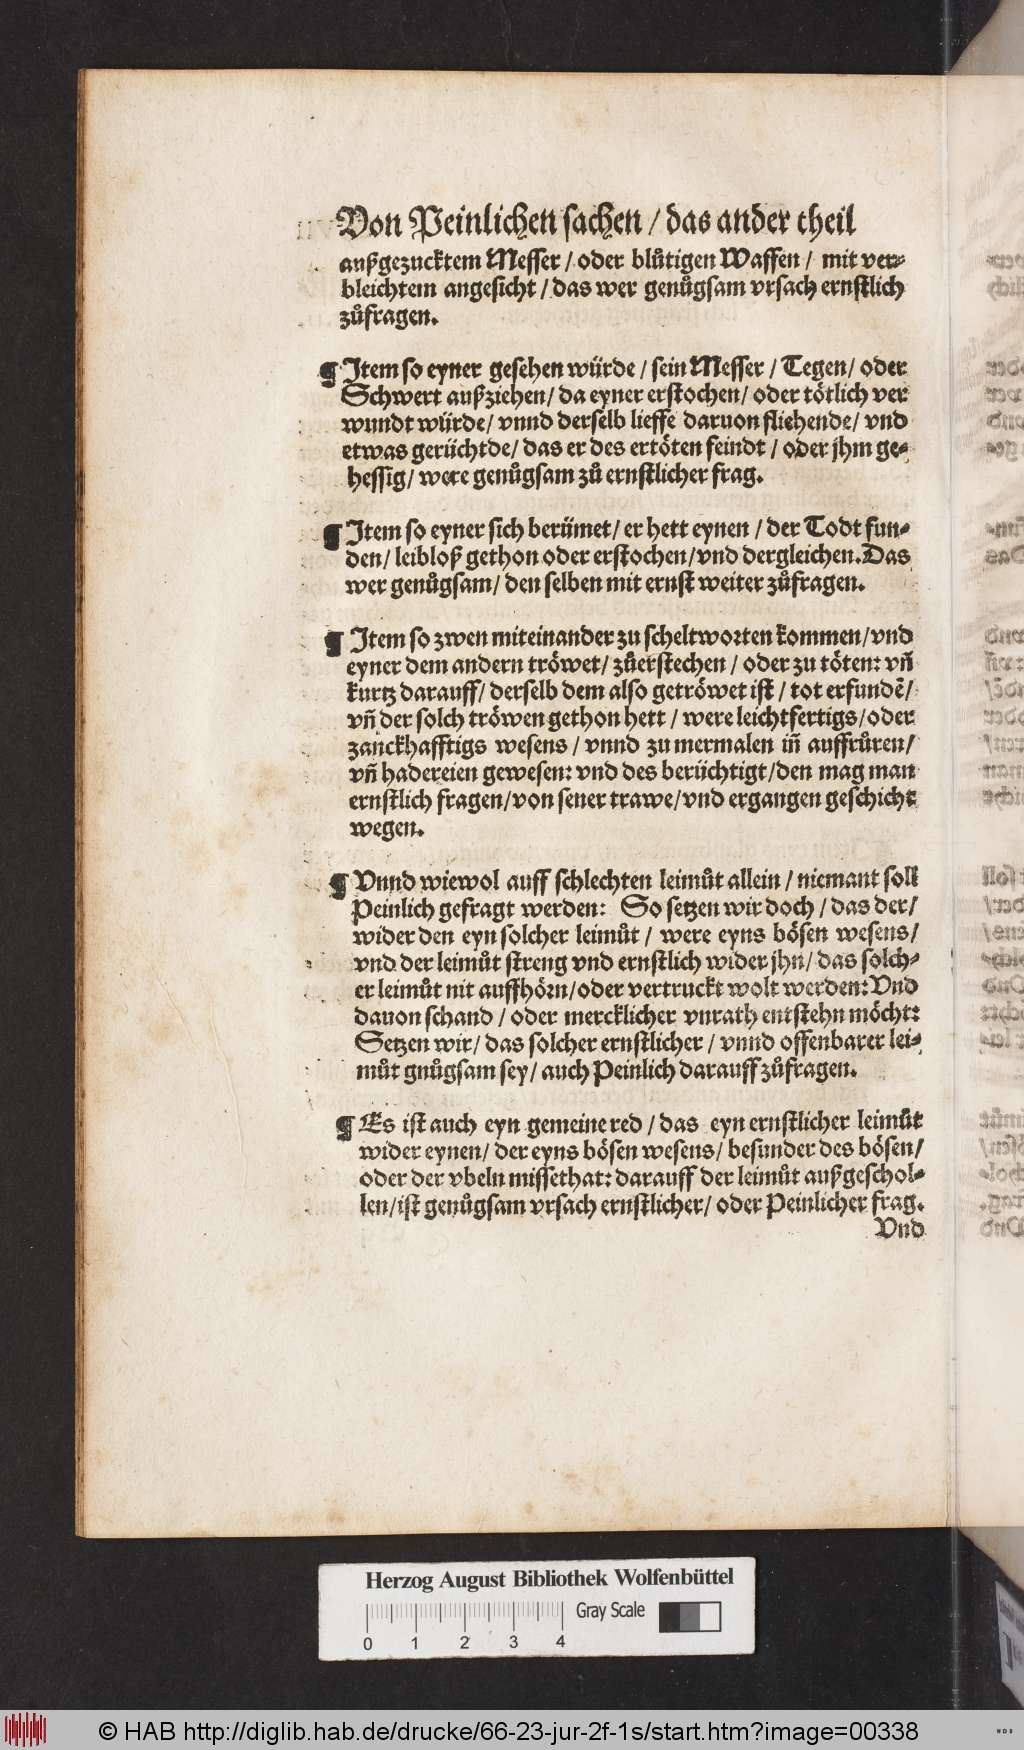 Von Peinlichen sachen / das ander theil
außgezucktem Messer / oder blůtigen Waffen / mit ver-
bleichtem angesicht / das wer genůgsam vrsach ernstlich
zůfragen.
¶ Item so eyner gesehen würde / sein Messer / Tegen / oder
Schwert außziehen / da eyner erstochen / oder tötlich ver
wundt würde / vnnd derselb lieffe daruon fliehende / vnd
etwas gerüchtde / das er des ertöten feindt / oder jhm ge-
hessig / were genůgsam zů ernstlicher frag.
¶ Item so eyner sich berümet / er hett eynen / der Todt fun-
den / leibloß gethon oder erstochen / vnd dergleichen. Das
wer genůgsam / den selben mit ernst weiter zůfragen.
¶ Item so zwen miteinander zu scheltworten kommen / vnd
eyner dem andern tröwet / zůerstechen / oder zu töten: vñ
kurtz darauff / derselb dem also getröwet ist / tot erfundẽ /
vñ der solch tröwen gethon hett / were leichtfertigs / oder
zanckhafftigs wesens / vnnd zu mermalen iñ auffrůren /
vñ hadereien gewesen: vnd des berüchtigt / den mag man
ernstlich fragen / von sener trawe / vnd ergangen geschicht
wegen.
¶ Vnnd wiewol auff schlechten leimůt allein / niemant soll
Peinlich gefragt werden: So setzen wir doch / das der /
wider den eyn solcher leimůt / were eyns bösen wesens /
vnd der leimůt streng vnd ernstlich wider jhn / das solch-
er leimůt nit auffhörn / oder vertruckt wolt werden: Vnd
dauon schand / oder mercklicher vnrath entstehn möcht:
Setzen wir / das solcher ernstlicher / vnnd offenbarer lei-
můt gnůgsam sey / auch Peinlich darauff zůfragen.
¶ Es ist auch eyn gemeine red / das eyn ernstlicher leimůt
wider eynen / der eyns bösen wesens / besunder des bösen /
oder der vbeln missethat: darauff der leimůt außgeschol-
len / ist genůgsam vrsach ernstlicher / oder Peinlicher frag.
Vnd
Herzog August Bibliothek Wolfenbüttel
Gray Scale
0 1 2 3 4
© HAB http://diglib.hab.de/drucke/66-23-jur-2f-1s/start.htm?image=00338